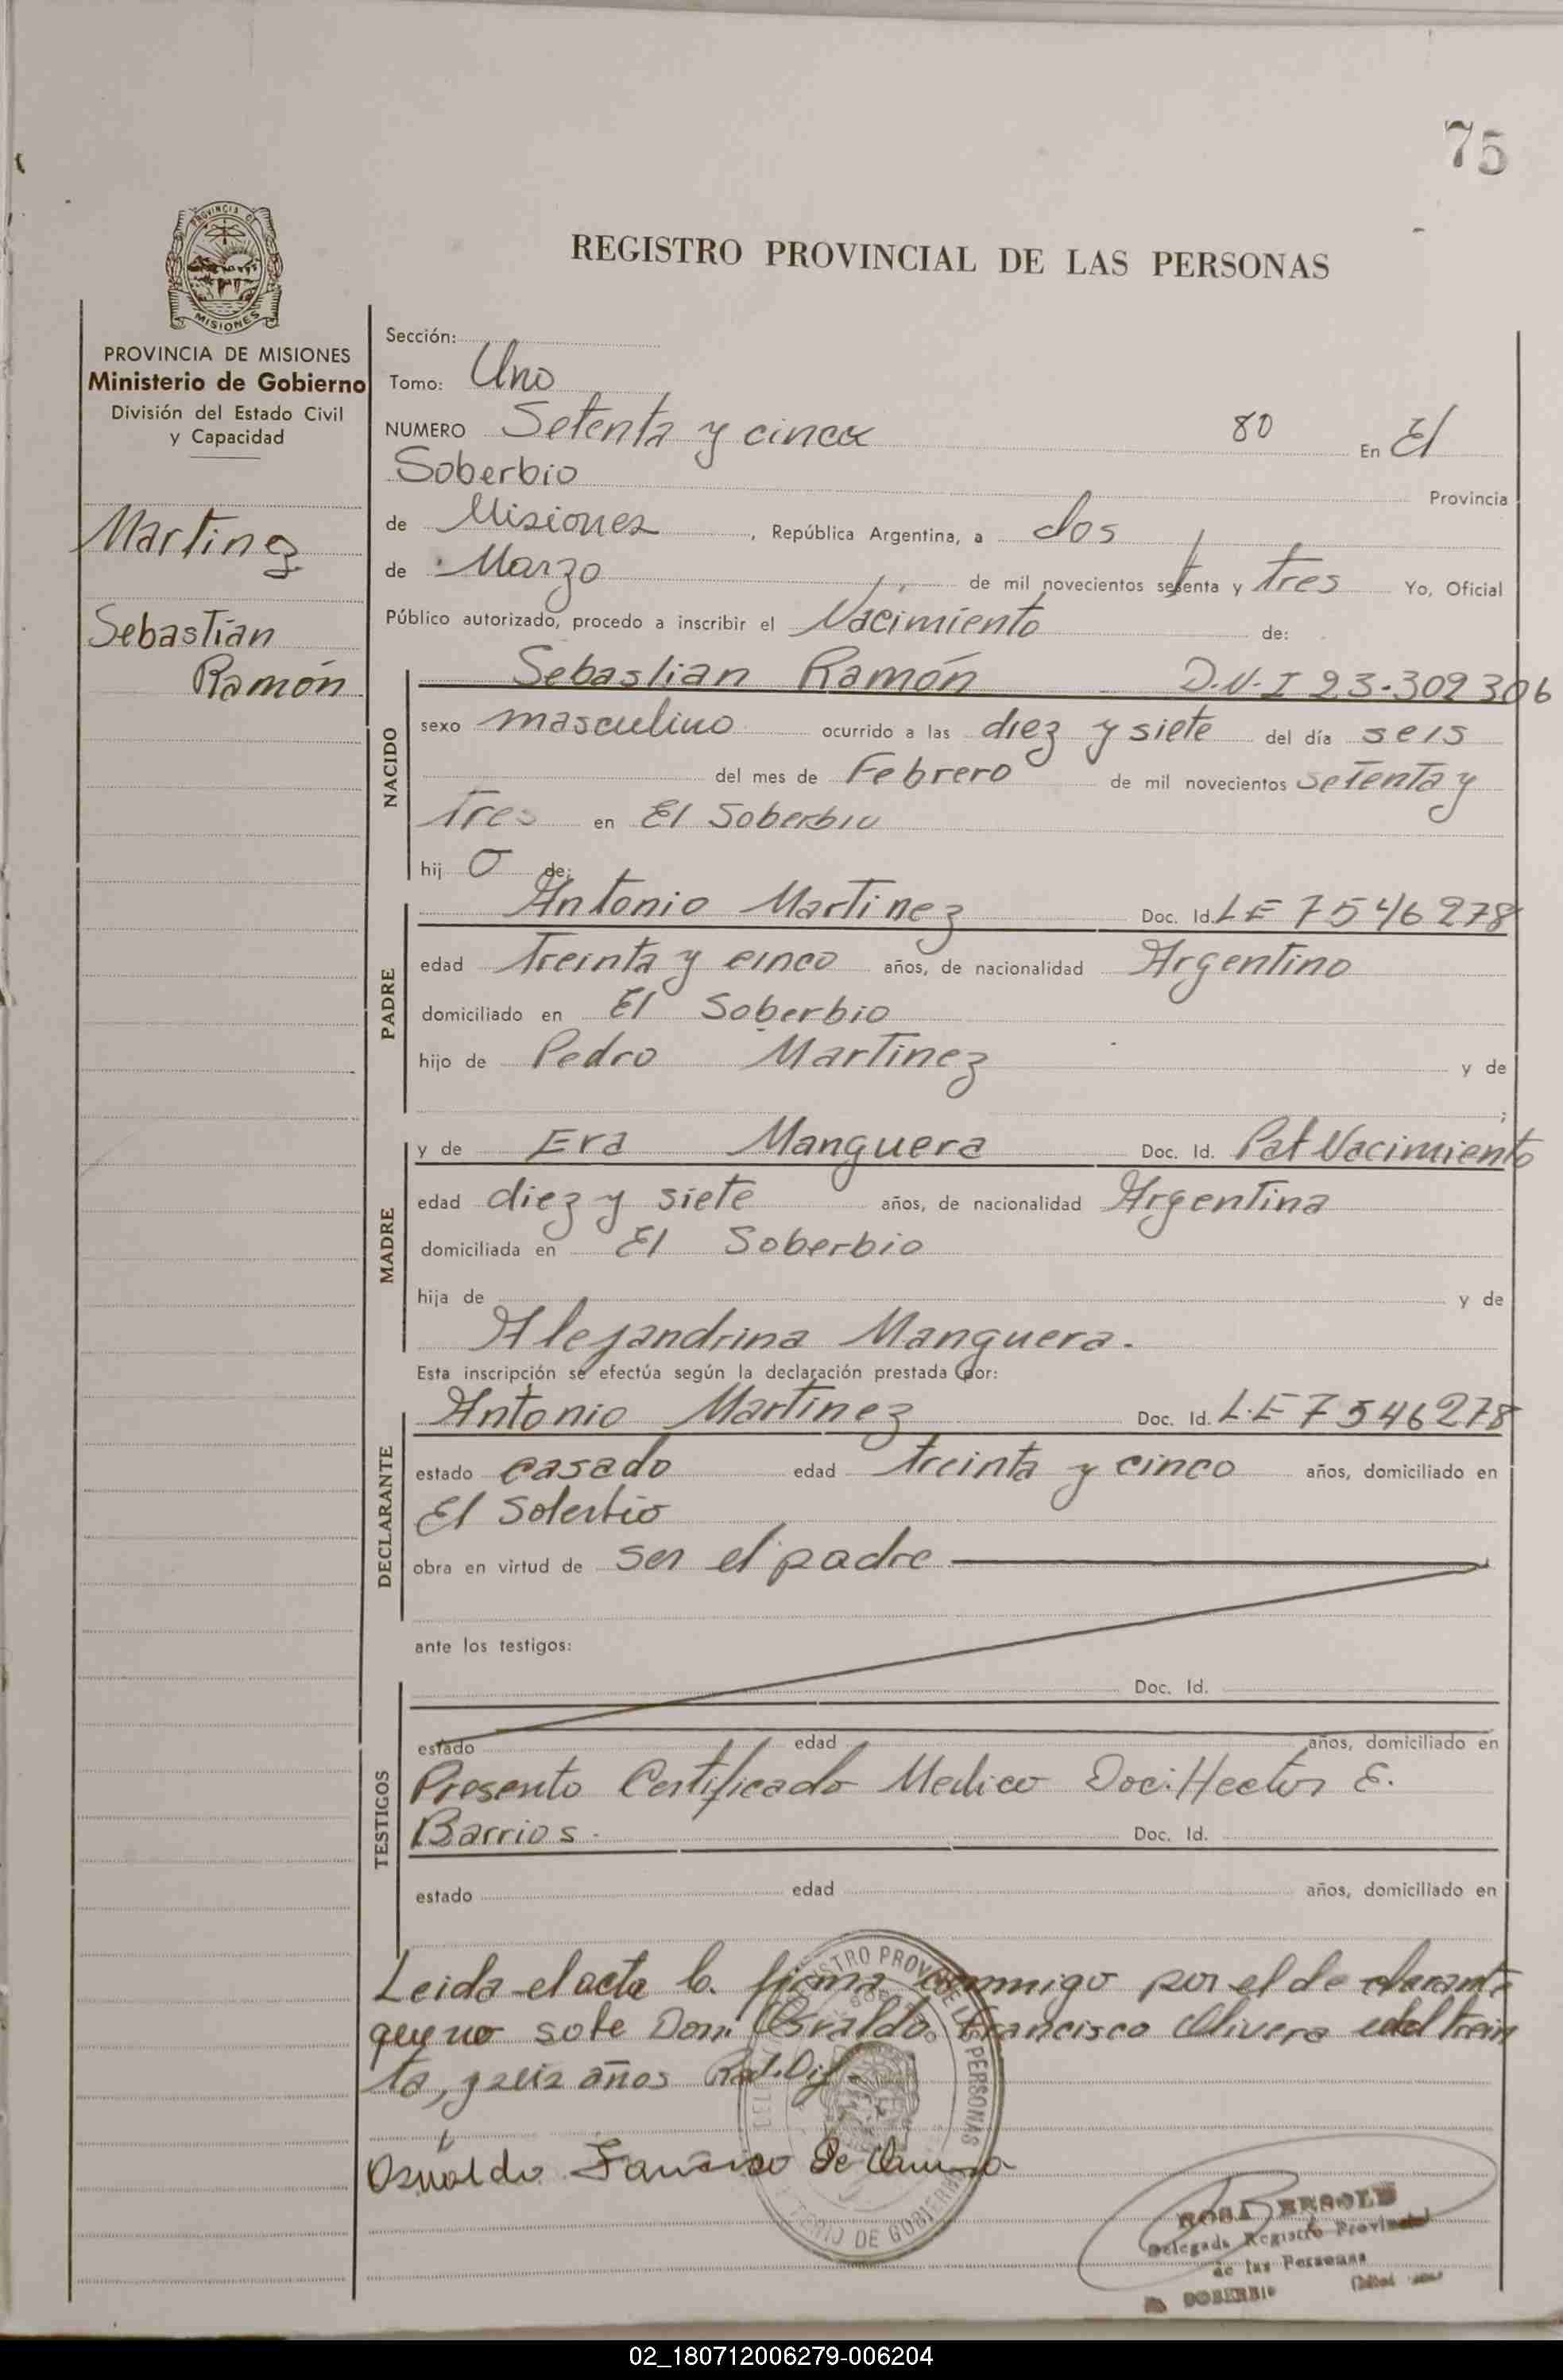 75
REGISTRO PROVINCIAL DE LAS PERSONAS
PROVINCIA DE
MISIONES
PROVINCIA DE MISIONES
Ministerio de Gobierno
División del Estado Civil
y Capacidad
Martinez
Sebastian
Ramón
Sección:
Tomo: Uno
NUMERO Setenta y cinco 80 En El
Soberbio Provincia
de Misiones, República Argentina, a dos
de Marzo de mil novecientos setenta y tres Yo, Oficial
Público autorizado, procedo a inscribir el Nacimiento de:
NACIDO
Sebastian Ramón D.N.I 23.309306
sexo masculino ocurrido a las diez y siete del día seis
del mes de Febrero de mil novecientos setenta y
tres en El Soberbio
hij o de:
PADRE
Antonio Martinez Doc. Id. LE 7546278
edad treinta y cinco años, de nacionalidad Argentino
domiciliado en El Soberbio
hijo de Pedro Martinez y de
;
MADRE
y de Eva Manguera Doc. Id. Pat Nacimiento
edad diez y siete años, de nacionalidad Argentina
domiciliada en El Soberbio
hija de y de
Alejandrina Manguera.
Esta inscripción se efectúa según la declaración prestada por:
DECLARANTE
Antonio Martinez Doc. Id. L.E 7546278
estado casado edad treinta y cinco años, domiciliado en
El Soberbio
obra en virtud de ser el padre
ante los testigos:
TESTIGOS
Doc. Id.
estado edad años, domiciliado en
Presento Certificado Medico Doc: Hector E.
Barrios. Doc. Id.
estado edad años, domiciliado en
Leida el acta la firma conmigo por el declarante
que no sabe Don Osvaldo Francisco Olivera edad trein
ta, y seis años
Osvaldo Francisco De
ROSA
Delegada Registro Provincial
de las Personas
SOBERBIO
02_180712006279-006204